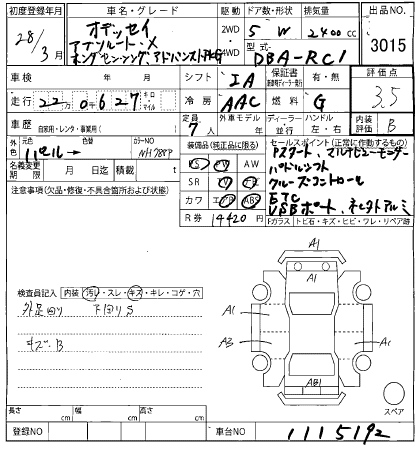 初度登録年月 車名・グレード 駆動 ドア数・形状 排気量 出品NO.
28/3月 オデッセイ 2WD 5 W 2400 cc 3015
アブソルート・X 4WD 型式
ホンダセンシング アドバンストPKG DBA-RC1
車検 シフト IA 保証書 有・無 評価点
走行 22万0千627 キロ マイル 冷房 AAC 燃料 G 3.5
車歴 自家用・レンタ・事業用( ) 定員 7人 外車モデル 年 ディーラー 並行 ハンドル 左・右 内装 B
外色 元色 パール 色替 カラーNO NH788P
装備品(純正品に限る)
セールスポイント(正常に作動するもの)
PS PW AW
Pスタート、マルチビューモニター
名義変更期限 月 日迄 積載 t
SR TV ナビ
パドルシフト
注意事項(欠品・修復・不具合箇所および状態)
カワ エアB ABS
クルーズコントロール
R券 14420 円
ETC
USBポート、
Fガラス トビ石・キズ・ヒビ・ワレ・リペア跡
A1
A1
検査員記入 内装 汚れ・スレ・キズ・キレ・コゲ・穴
A1
外足回り 下回りS
AB A1
キズ・B
AB1
スペア
長さ cm 幅 cm 高さ cm
登録NO 車台NO 1115192